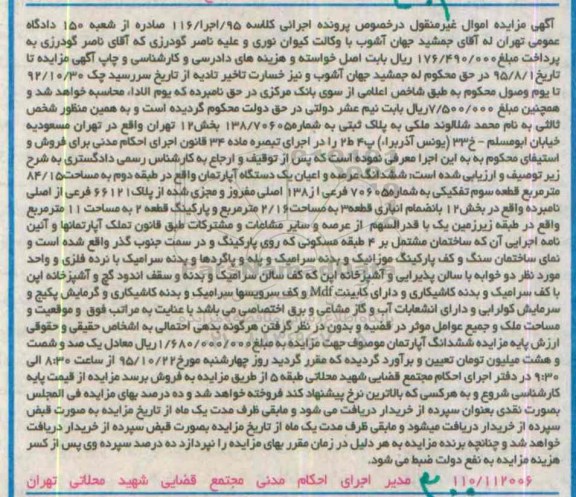 آگهی مزایده اموال غیرمنقول درخصوص پرونده اجرائی کلاسه ۹۵/اجرا/۱۱۶ صادره از شعبه ۱۵۰ دادگاه
عمومی تهران له آقای جمشید جهان آشوب با وکالت کیوان نوری و علیه ناصر گودرزی که آقای ناصر گودرزی به
پرداخت مبلغ ۱۷۶/۴۹۰/۰۰۰ ریال بابت اصل خواسته و هزینه های دادرسی و کارشناسی و چاپ آگهی مزایده تا
تاریخ ۹۵/۸/۱ در حق محکوم له جمشید جهان آشوب و نیز خسارت تاخیر تادیه از تاریخ سررسید چک ۹۲/۱۰/۳۰
تا یوم وصول محکوم به طبق شاخص اعلامی از سوی بانک مرکزی در حق نامبرده که یوم الادا، محاسبه خواهد شد و
همچنین مبلغ ۷/۵۰۰/۰۰۰ ریال بابت نیم عشر دولتی در حق دولت محکوم گردیده است و به همین منظور شخص
ثالثی به نام محمد شللوند ملکی به پلاک ثبتی به شماره ۱۳۸/۷۰۶۰۵ بخش ۱۲ تهران واقع در تهران مسعودیه
خیابان ابومسلم - خ ۳۳ (یونس آذربراء) پ ۴ ط ۲ را در اجرای تبصره ماده ۳۴ قانون اجرای احکام مدنی برای فروش و
استیفای محکوم به به این اجرا معرفی نموده است که پس از توقیف و ارجاع به کارشناس رسمی دادگستری به شرح
زیر توصیف و ارزیابی شده است: ششدانگ عرصه و اعیان یک دستگاه آپارتمان واقع در طبقه دوم به مساحت ۸۴/۱۵
مترمربع قطعه سوم تفکیکی به شماره ۷۰۶۰۵ فرعی از ۱۳۸ اصلی مفروز و مجزی شده از پلاک ۶۶۱۲۱ فرعی از اصلی
نامبرده واقع در بخش ۱۲ بانضمام انباری قطعه ۳ به مساحت ۲/۱۶ مترمربع و پارکینگ قطعه ۲ به مساحت ۱۱ مترمربع
واقع در طبقه زیرزمین یک با قدرالسهم از عرصه و سایر مشاعات و مشترکات طبق قانون تملک آپارتمانها و آئین
نامه اجرایی آن که ساختمان مشتمل بر ۴ طبقه مسکونی که روی پارکینگ و در سمت جنوب گذر واقع شده است و
نمای ساختمان سنگ و کف پارکینگ موزائیک و بدنه سرامیک و پله و پاگردها و بدنه سرامیک با نرده فلزی و واحد
مورد نظر دو خوابه با سالن پذیرایی و آشپزخانه اپن که کف سالن سرامیک و بدنه و سقف اندود گچ و آشپزخانه اپن
با کف سرامیک و بدنه کاشیکاری و دارای کابینت Mdf و کف سرویسها سرامیک و بدنه کاشیکاری و گرمایش پکیج و
سرمایش کولرابی و دارای انشعابات آب و گاز مشاعی و برق اختصاصی می باشد با عنایت به مراتب فوق و موقعیت و
مساحت ملک و جمیع عوامل موثر در قضیه و بدون در نظر گرفتن هرگونه بدهی احتمالی به اشخاص حقیقی و حقوقی
ارزش پایه مزایده ششدانگ آپارتمان موصوف جهت مزایده به مبلغ ۱/۶۸۰/۰۰۰/۰۰۰ ریال معادل یک صد و شصت
و هشت میلیون تومان تعیین و برآورد گردیده که مقرر گردید روز چهارشنبه مورخ ۹۵/۱۰/۲۲ از ساعت ۸:۳۰ الی
۹:۳۰ در دفتر اجرای احکام مجتمع قضایی شهید محلاتی طبقه ۵ از طریق مزایده به فروش برسد مزایده از قیمت پایه
کارشناسی شروع و به هرکسی که بالاترین نرخ پیشنهاد کند فروخته خواهد شد و ده درصد بهای مزایده فی المجلس
بصورت نقدی بعنوان سپرده از خریدار دریافت می شود و مابقی ظرف مدت یک ماه از تاریخ مزایده به صورت قبض
سپرده از خریدار دریافت میشود و مابقی ظرف مدت یک ماه از تاریخ مزایده بصورت قبض سپرده از خریدار دریافت
خواهد شد و چنانچه برنده مزایده به هر دلیل در زمان مقرر بهای مزایده را نپردازد ده درصد سپرده وی پس از کسر
هزینه مزایده به نفع دولت ضبط می شود.
۱۱۰/۱۱۲۰۰۶ مدیر اجرای احکام مدنی مجتمع قضایی شهید محلاتی تهران